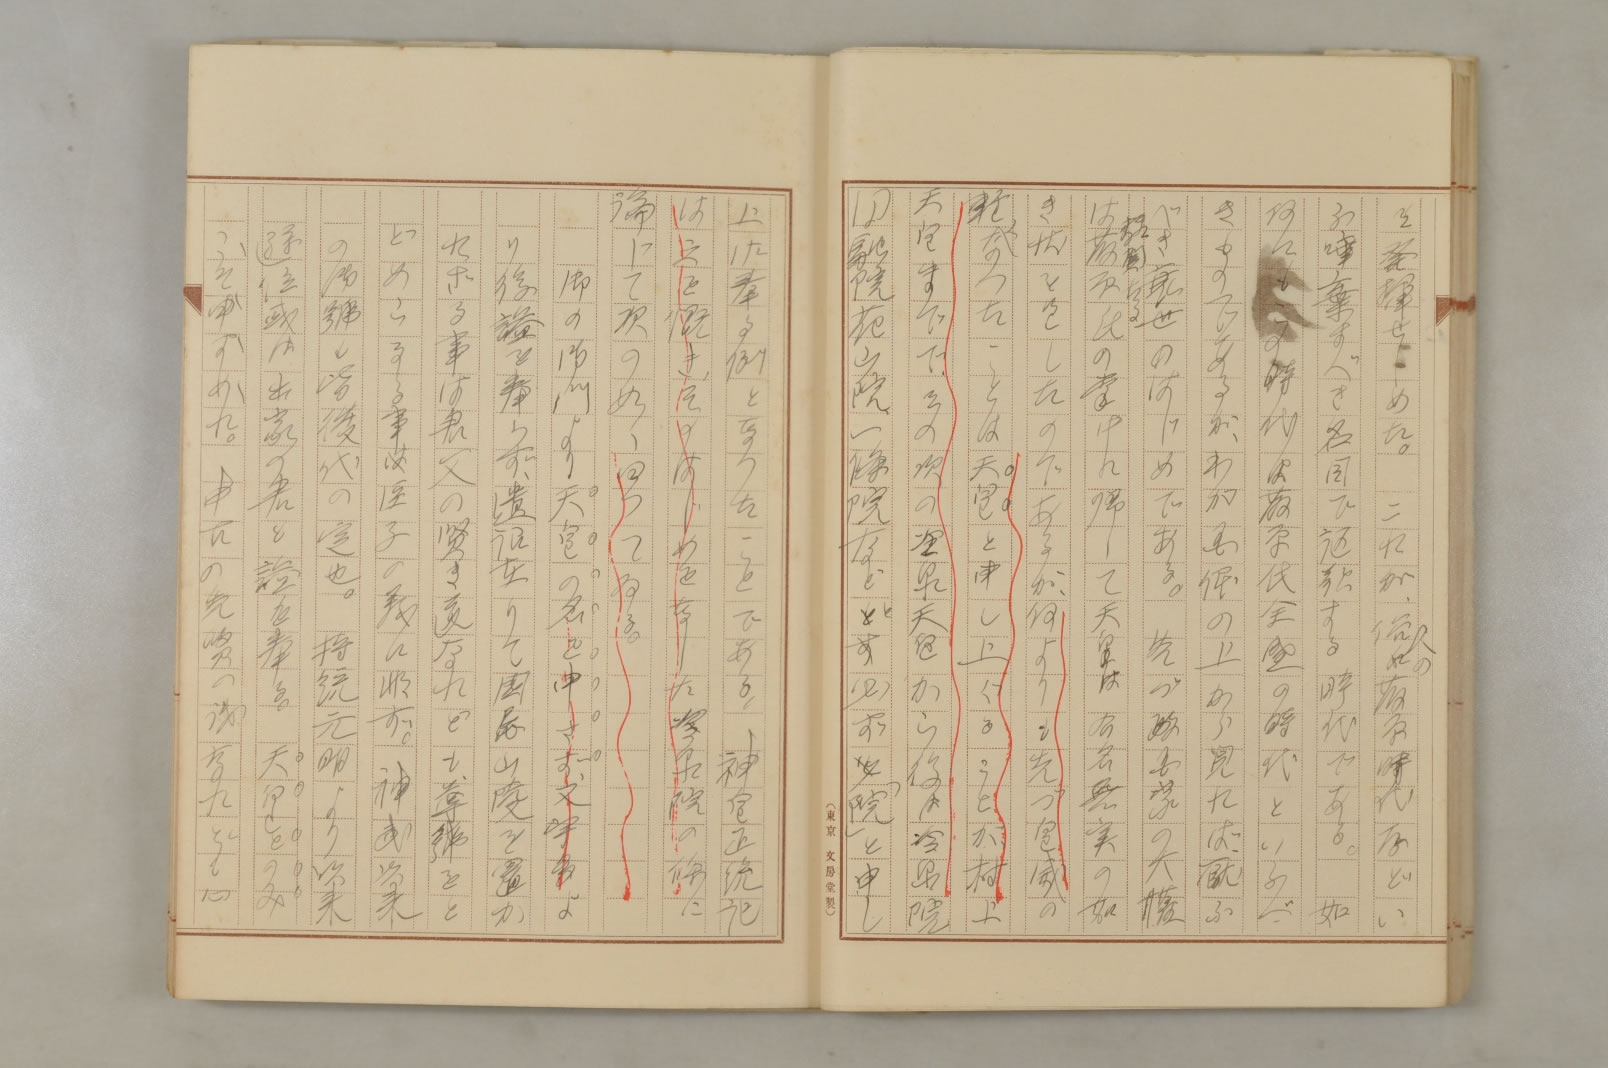 を発揮せしめた。 これが、俗人の
ふ唾棄すべき名目で証説する時代である。 如
何にもこの時代は藤原氏全盛の時代といふべ
きものであるが、わが国体の上から見れば厭ふ
べき衰世のはじめである。 先づ
は藤原氏の掌中に帰して天皇は有名無実の如
き状を呈したのであるが、何よりも先づ皇威の
軽くなつたことは天皇と申し上ぐることが村上
天皇までで、その次の冷泉天皇から後は冷泉院
円融院花山院、一條院などと申さ必ず「院」と申し
上げ奉る例となつたことである。神皇正統記
は之を慨き、そのはじめをなした冷泉院の條に
論じて次の如く曰つてゐる。
此の御門より天皇の名を申さず、又宇多よ
り後諡を奉らず、遺詔在りて国忌山陵を置か
れざる事は君父の賢き道なれども、尊號をと
どめらるる事は臣子の義に順ず。神武以来
の御號も皆後代の定也。 持統元明より以来
遜位或は出家の君も諡を奉る。 天皇とのみ
こそ申すめれ。 中古の先賢の議なれども心
(東京 文房堂製)